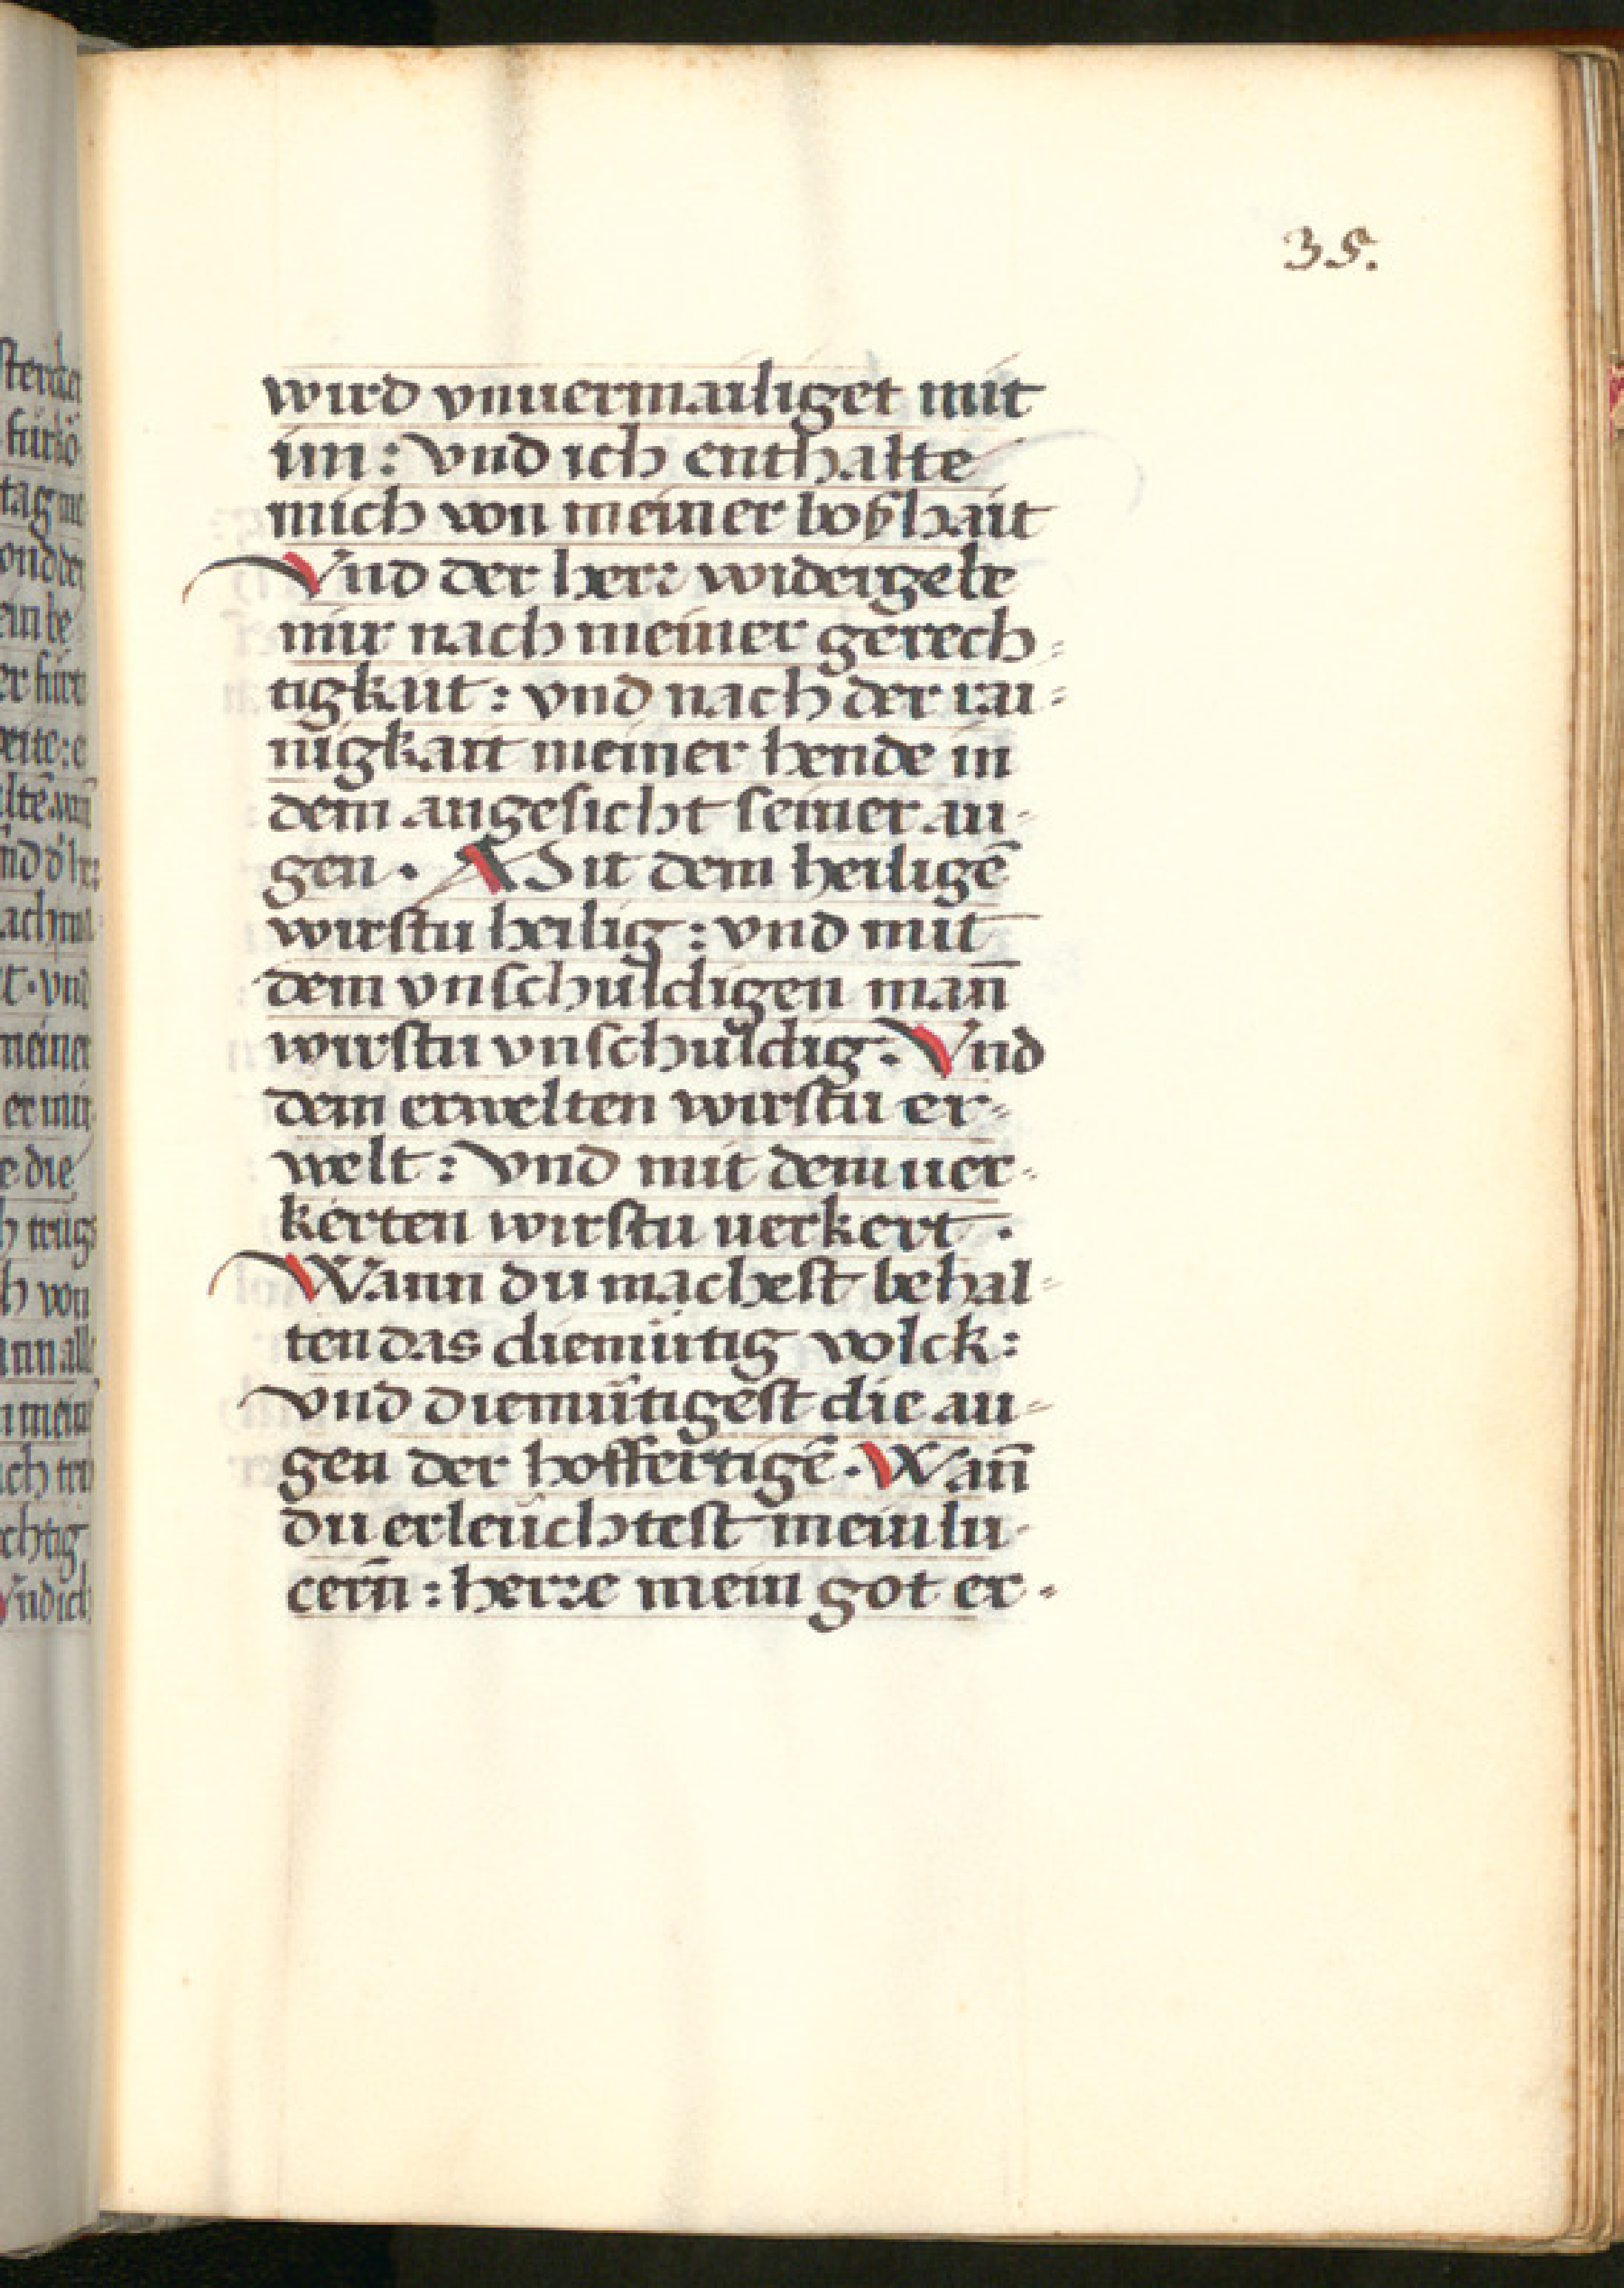 35.
wird vnuermailiget mit
im: vnd ich enthalte
mich von meiner boßhait
Vnd der herr widergebe
mir nach meiner gerech=
tigkait: vnd nach der rai=
nigkait meiner hende in
dem angesicht seiner au-
gen. Mit dem heiligē
wirstu heilig: vnd mit
dem vnschuldigen man̄
wirstu vnschuldig. Vnd
dem erwelten wirstu er-
welt: vnd mit dem uer-
kerten wirstu uerkert.
Wann du machest behal=
ten das diemütig volck:
vnd diemütigest die au=
gen der hoffertigē. Wan̄
du erleüchtest mein lu-
cern̄: herre mein got er-